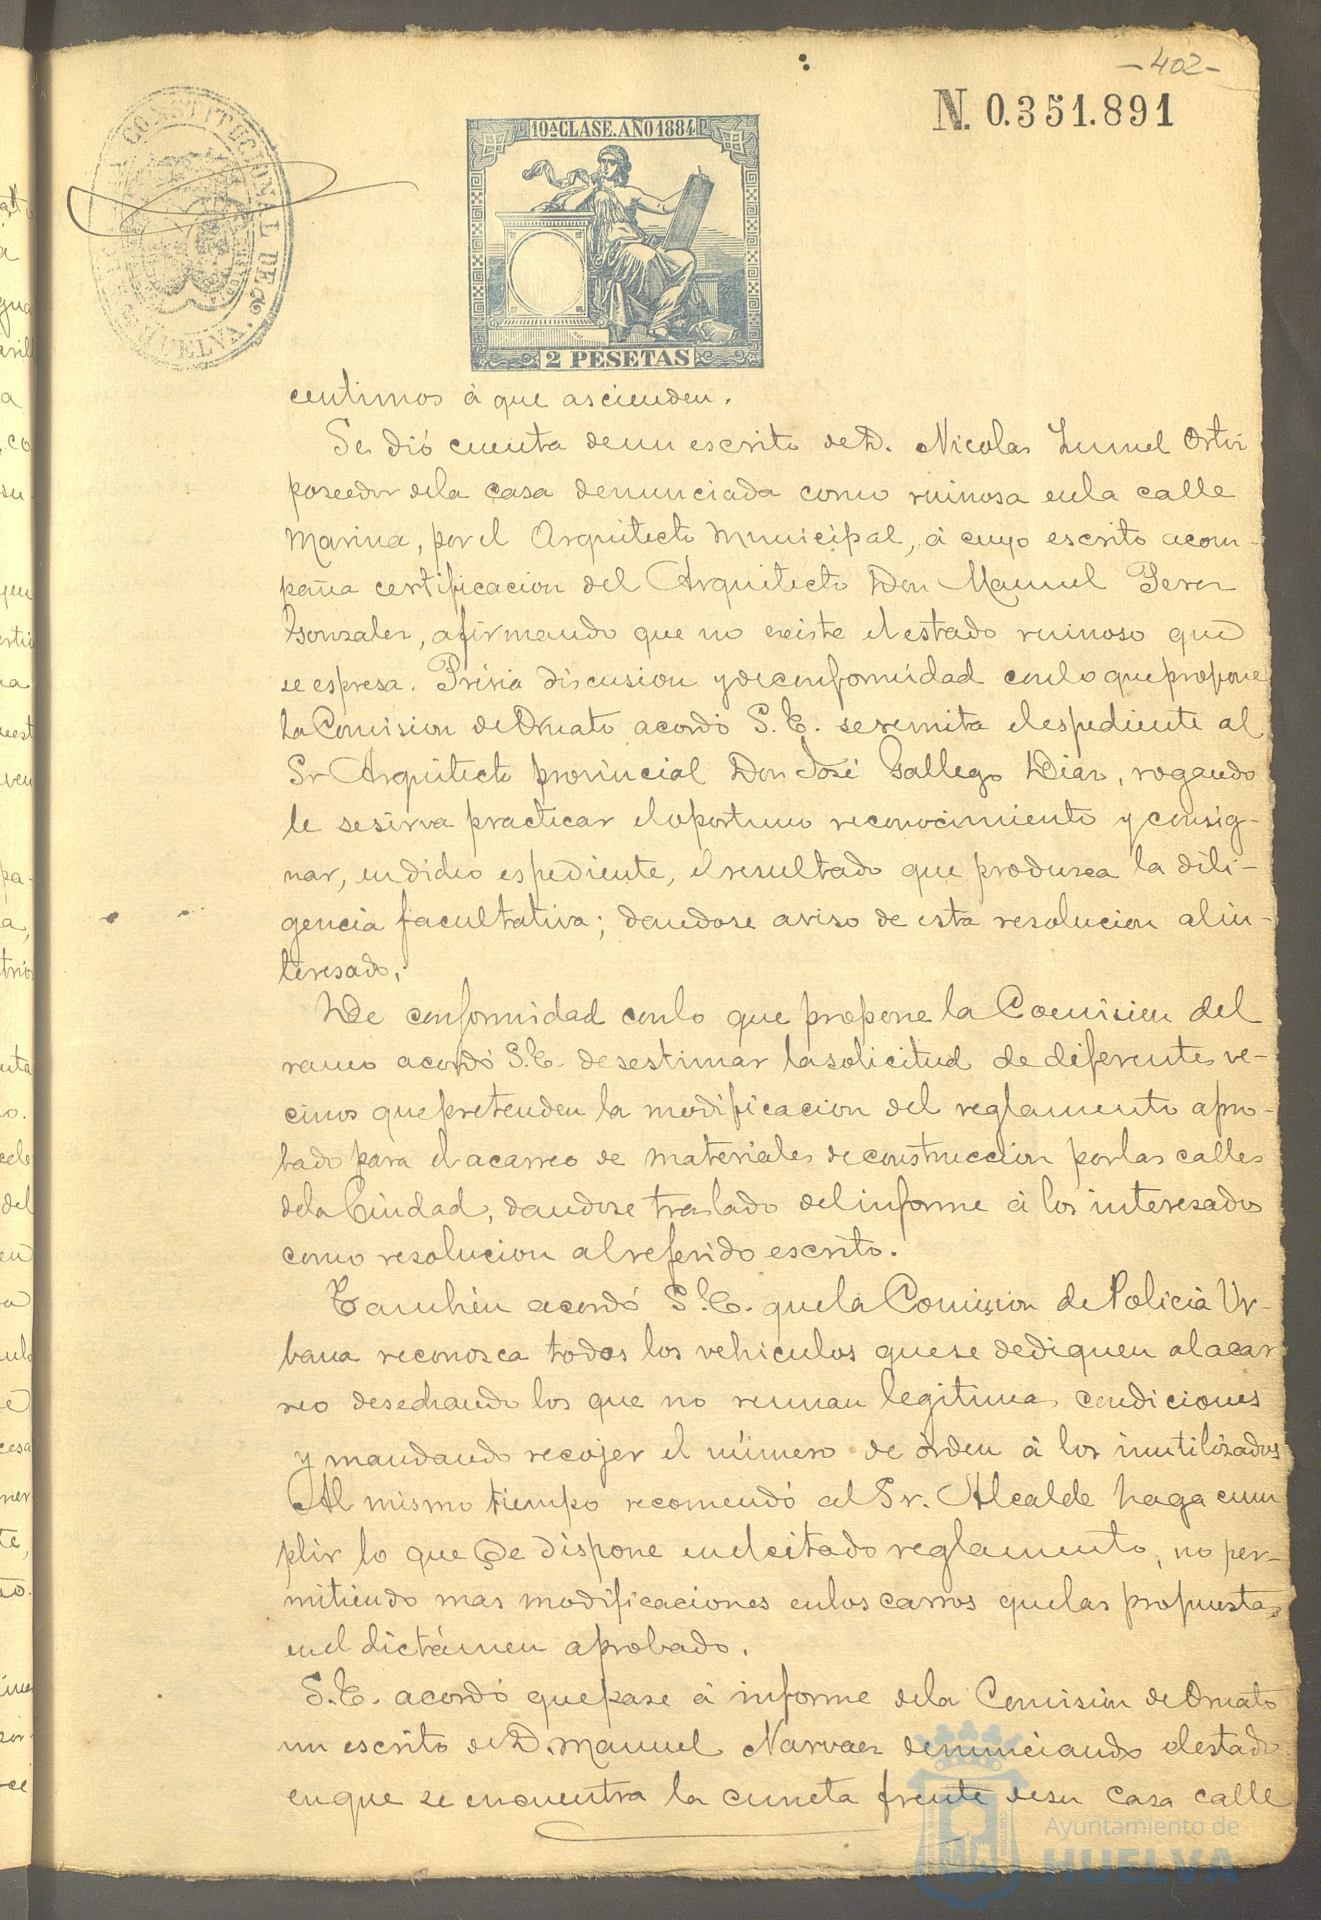 -402-
N. 0.351.891
10ª CLASE. AÑO 1884
2 PESETAS
CONSTITUCIONAL DE HUELVA
centimos á que ascienden.
Se dió cuenta de un escrito de D. Nicolas
poseedor dela casa denunciada como ruinosa enla calle
Marina, por el Arquitecto Municipal, á cuyo escrito acom-
paña certificacion del Arquitecto Don Manuel Perez
Gonzalez, afirmando que no existe el estado ruinoso que
se espresa. Prévia discusion y de conformidad con lo que propone
la Comision de Ornato acordó S. E. se remita el espediente al
Sr Arquitecto provincial Don José Gallego Diaz, rogando
le se sirva practicar el oportuno reconocimiento y consig-
nar, en dicho espediente, el resultado que produzca la dili-
gencia facultativa; dandose aviso de esta resolucion al in-
teresado.
De conformidad con lo que propone la Comision del
ramo acordó S.E. desestimar la solicitud de diferentes ve-
cinos que pretenden la modificacion del reglamento apro-
bado para el acarreo de materiales de construccion por las calles
dela Ciudad, dandose traslado del informe á los interesados
como resolucion al referido escrito.
Tambien acordó S.E. que la Comision de Policia Ur-
bana reconozca todos los vehiculos que se dediquen al acar
reo desechando los que no reunan legitimas condiciones
y mandando recojer el número de órden á los inutilizados
Al mismo tiempo recomendó al Sr. Alcalde haga cum
plir lo que se dispone en el citado reglamento, no per-
mitiendo mas modificaciones en los carros que las propuestas
en el dictámen aprobado.
S.E. acordó que pase á informe dela Comision de Ornato
un escrito de D. Manuel Narvaez denunciando el estado
en que se encuentra la cuneta frente de su casa calle
Ayuntamiento de
HUELVA